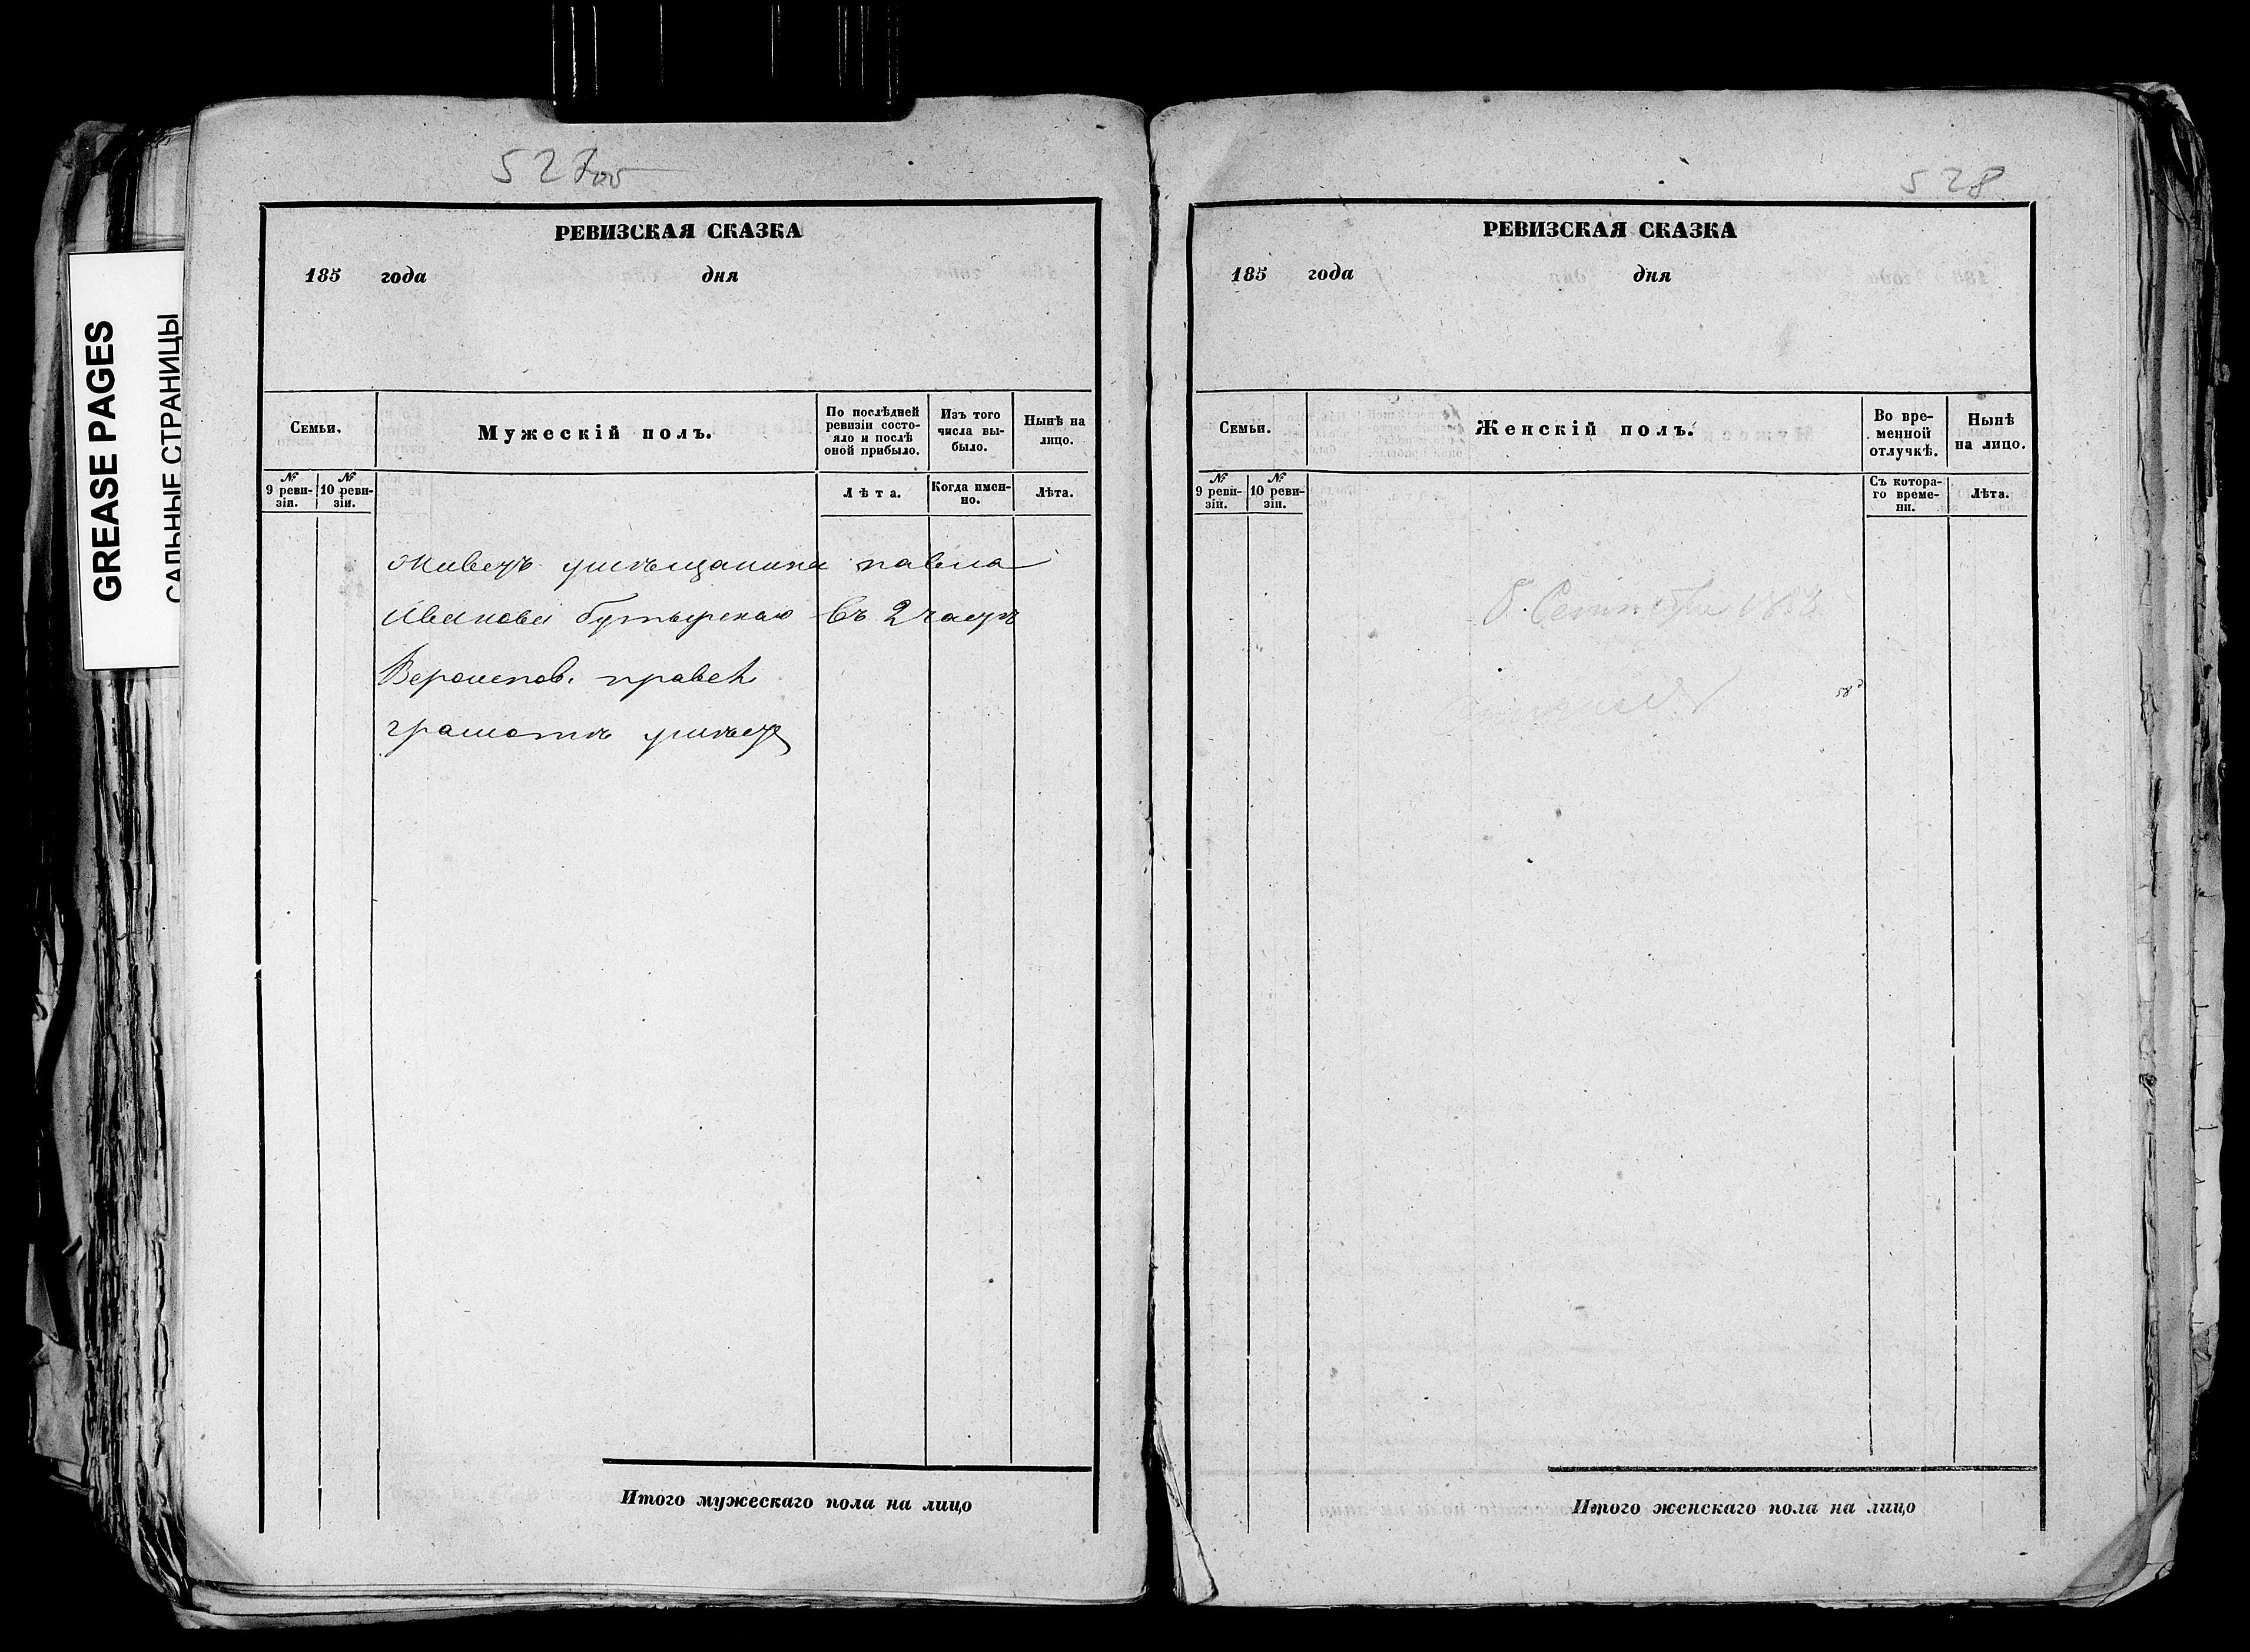 GREASE PAGES
САЛЬНЫЕ СТРАНИЦЫ
527об
РЕВИЗСКАЯ СКАЗКА
185 года дня
Семьи.
Мужескій полъ.
По послѣдней ревизіи состояло и послѣ оной прибыло.
Изъ того числа выбыло.
Нынѣ на лицо.
№ 9 ревизіи.
№ 10 ревизіи.
Лѣта.
Когда именно.
Лѣта.
Живетъ умѣщанина павла
Иванова бутырскаго въ 2 части
грамотѣ умѣетъ
Итого мужескаго пола на лицо
528
РЕВИЗСКАЯ СКАЗКА
185 года дня
Семьи.
Женскій полъ.
Во временной отлучкѣ.
Нынѣ на лицо.
№ 9 ревизіи.
№ 10 ревизіи.
Съ котораго времени.
Лѣта.
Итого женскаго пола на лицо